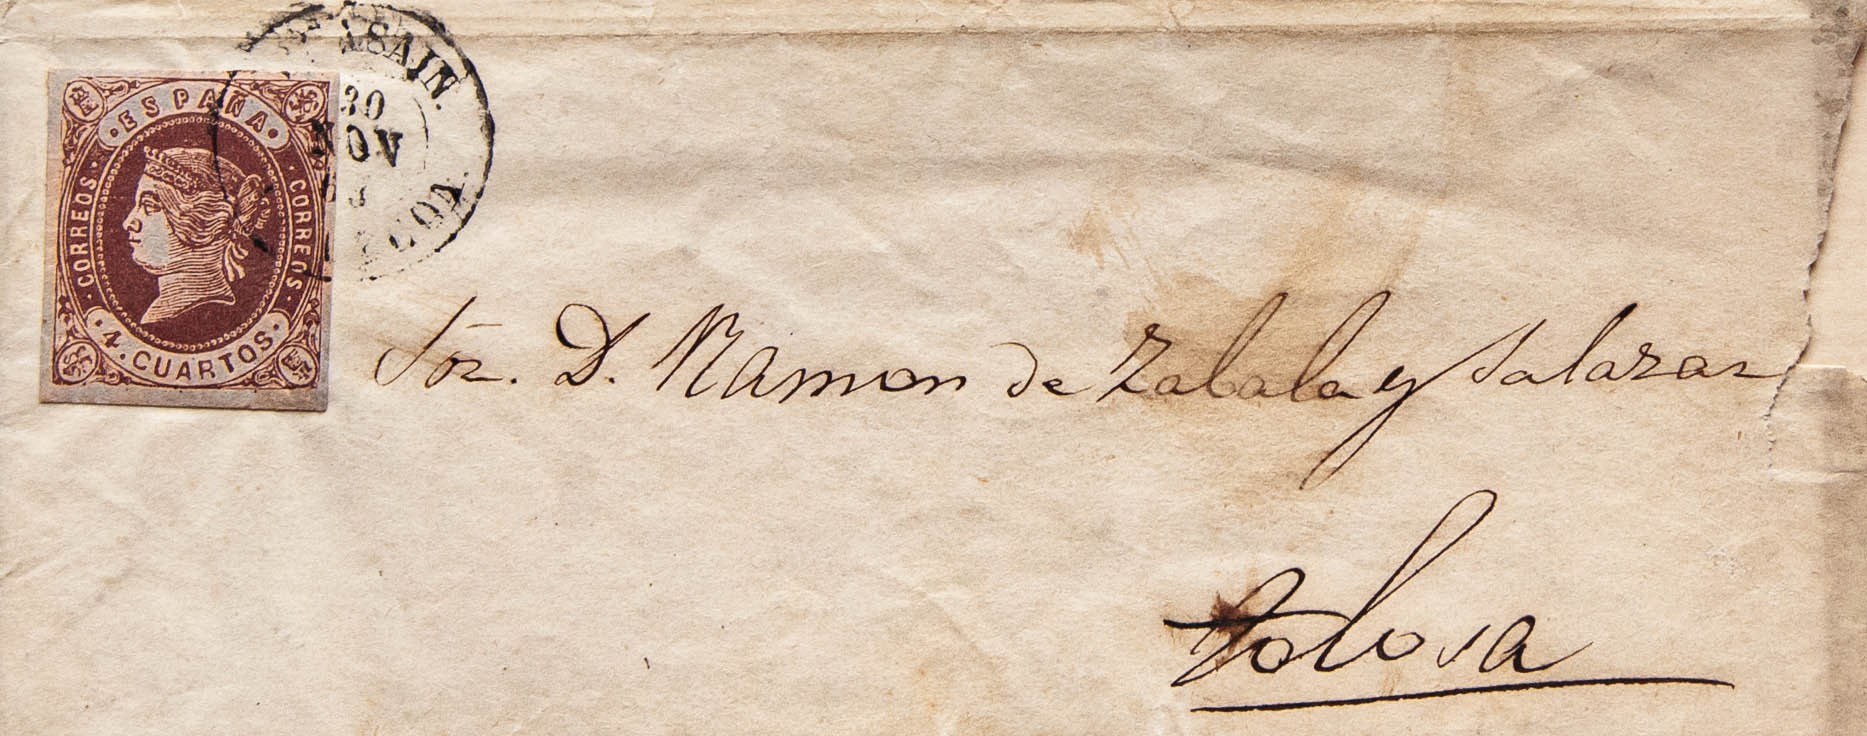 ESPAÑA
CORREOS
CORREOS
4 CUARTOS
30
NOV
63
Sor. D. Ramon de Zabala y Salazar
Tolosa